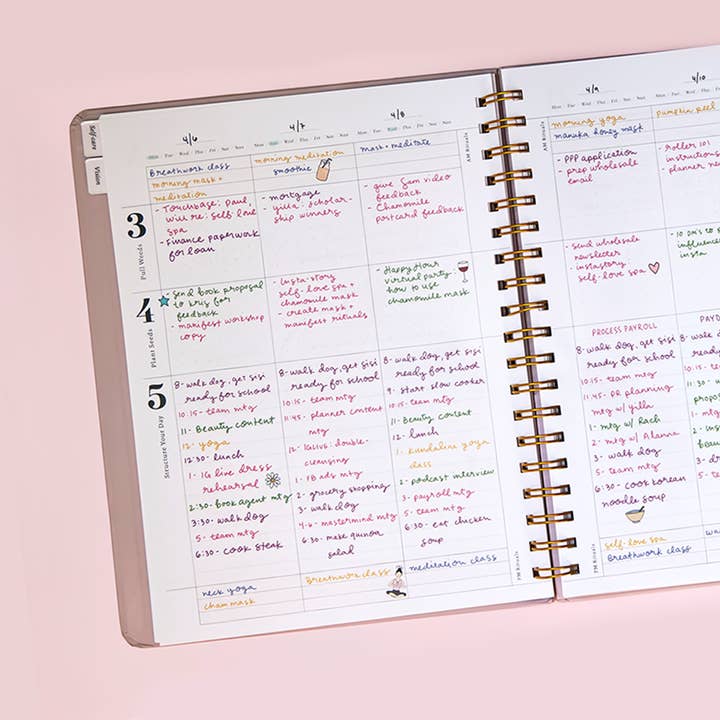 Self-care
Vision
4/6
Mon Tue Wed Thu Fri Sat Sun
Breathwork class
morning mask +
meditation
3
Pull Weeds
- Touchbase: Paul,
will re: self-love
spa
- Finance paperwork
for loan
4
Plant Seeds
- send book proposal
to kris for
feedback
- manifest workshop
copy
5
Structure Your Day
8- walk dog, get sisi
ready for school
10:15- team mtg
11- Beauty content
12- yoga
12:30- lunch
1- IG live dress
rehearsal
2:30- book agent mtg
3:30- walk dog
5- team mtg
6:30- cook steak
neck yoga
cham mask
4/7
Mon Tue Wed Thu Fri Sat Sun
morning meditation
smoothie
- mortgage
- yilla: scholar-
ship winners
- Insta-story
self-love spa +
chamomile mask
- create mask +
manifest rituals
8- walk dog, get sisi
ready for school
10:15- team mtg
11:45- planner content
mtg
12- IGLIVE: double-
cleansing
1- FB ads mtg
2- grocery shopping
3- walk dog
4-6- mastermind mtg
6:30- make quinoa
salad
Breathwork class
4/8
Mon Tue Wed Thu Fri Sat Sun
mask + meditate
AM Rituals
- give Sam video
feedback
- Chamomile
postcard feedback
- Happy Hour
virtual party:
how to use
chamomile mask
8- walk dog, get sisi
ready for school
9- start slow cooker
10:15- team mtg
11- Beauty content
12- lunch
1- kundalini yoga
class
2- podcast interview
3- payroll mtg
5- team mtg
6:30- eat chicken
soup
meditation class
PM Rituals
4/9
Mon Tue Wed Thu Fri Sat Sun
AM Rituals
morning yoga
manuka honey mask
- PPP application
- prep wholesale
email
- send wholesale
newsletter
- instastory:
self-love spa
PROCESS PAYROLL
8- walk dog, get sisi
ready for school
10:15- team mtg
11:45- PR planning
mtg w/ yilla
1- mtg w/ Rach
2- mtg w/ Alanna
3- walk dog
5- team mtg
6:30- cook korean
noodle soup
self-love spa
Breathwork class
PM Rituals
4/10
Mon Tue Wed
pumpkin peel
- roller 101
instructions
- planner
- 10 DM's to
influence
insta
PAYD
8- walk dog
ready for
10:15- team
11:30-
propos
1- mtg
2-
beau
3-
5- team